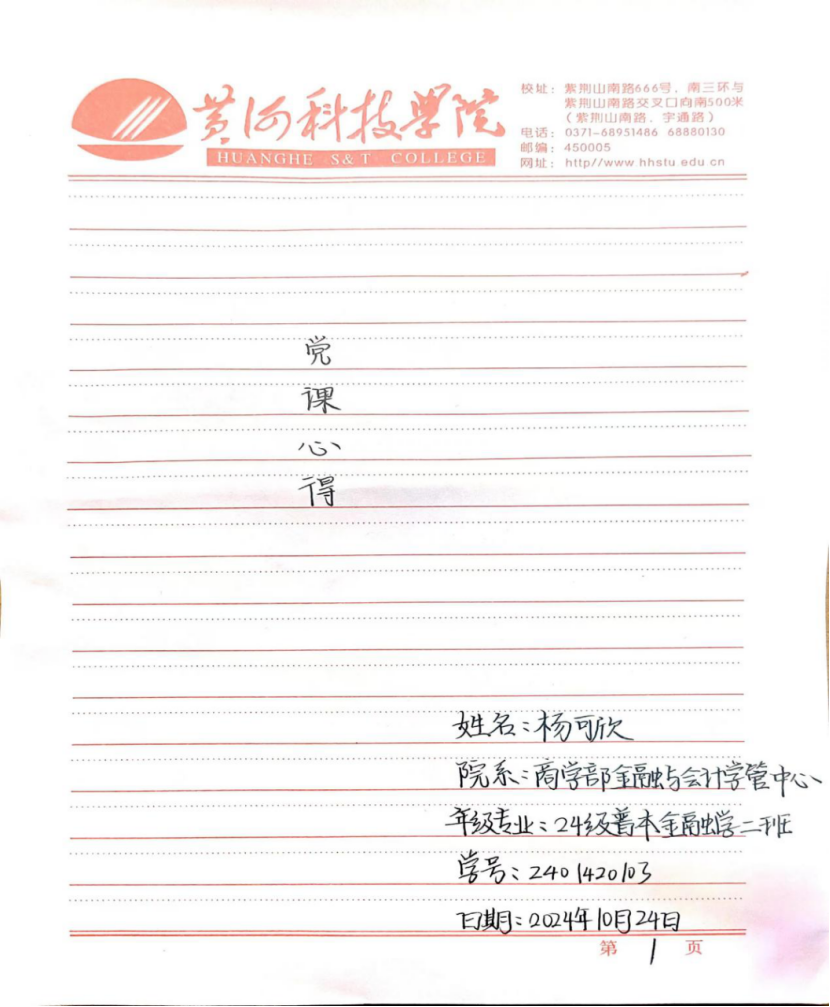 黄河科技学院
HUANGHE S&T COLLEGE
校址：紫荆山南路666号，南三环与
紫荆山南路交叉口向南500米
（紫荆山南路、宇通路）
电话：0371-68951486 68880130
邮编：450005
网址：http//www hhstu edu cn
党
课
心
得
姓名：杨可欣
院系：商学部金融与会计学管中心
年级专业：24级普本金融学二班
学号：2401420103
日期：2024年10月24日
第 1 页